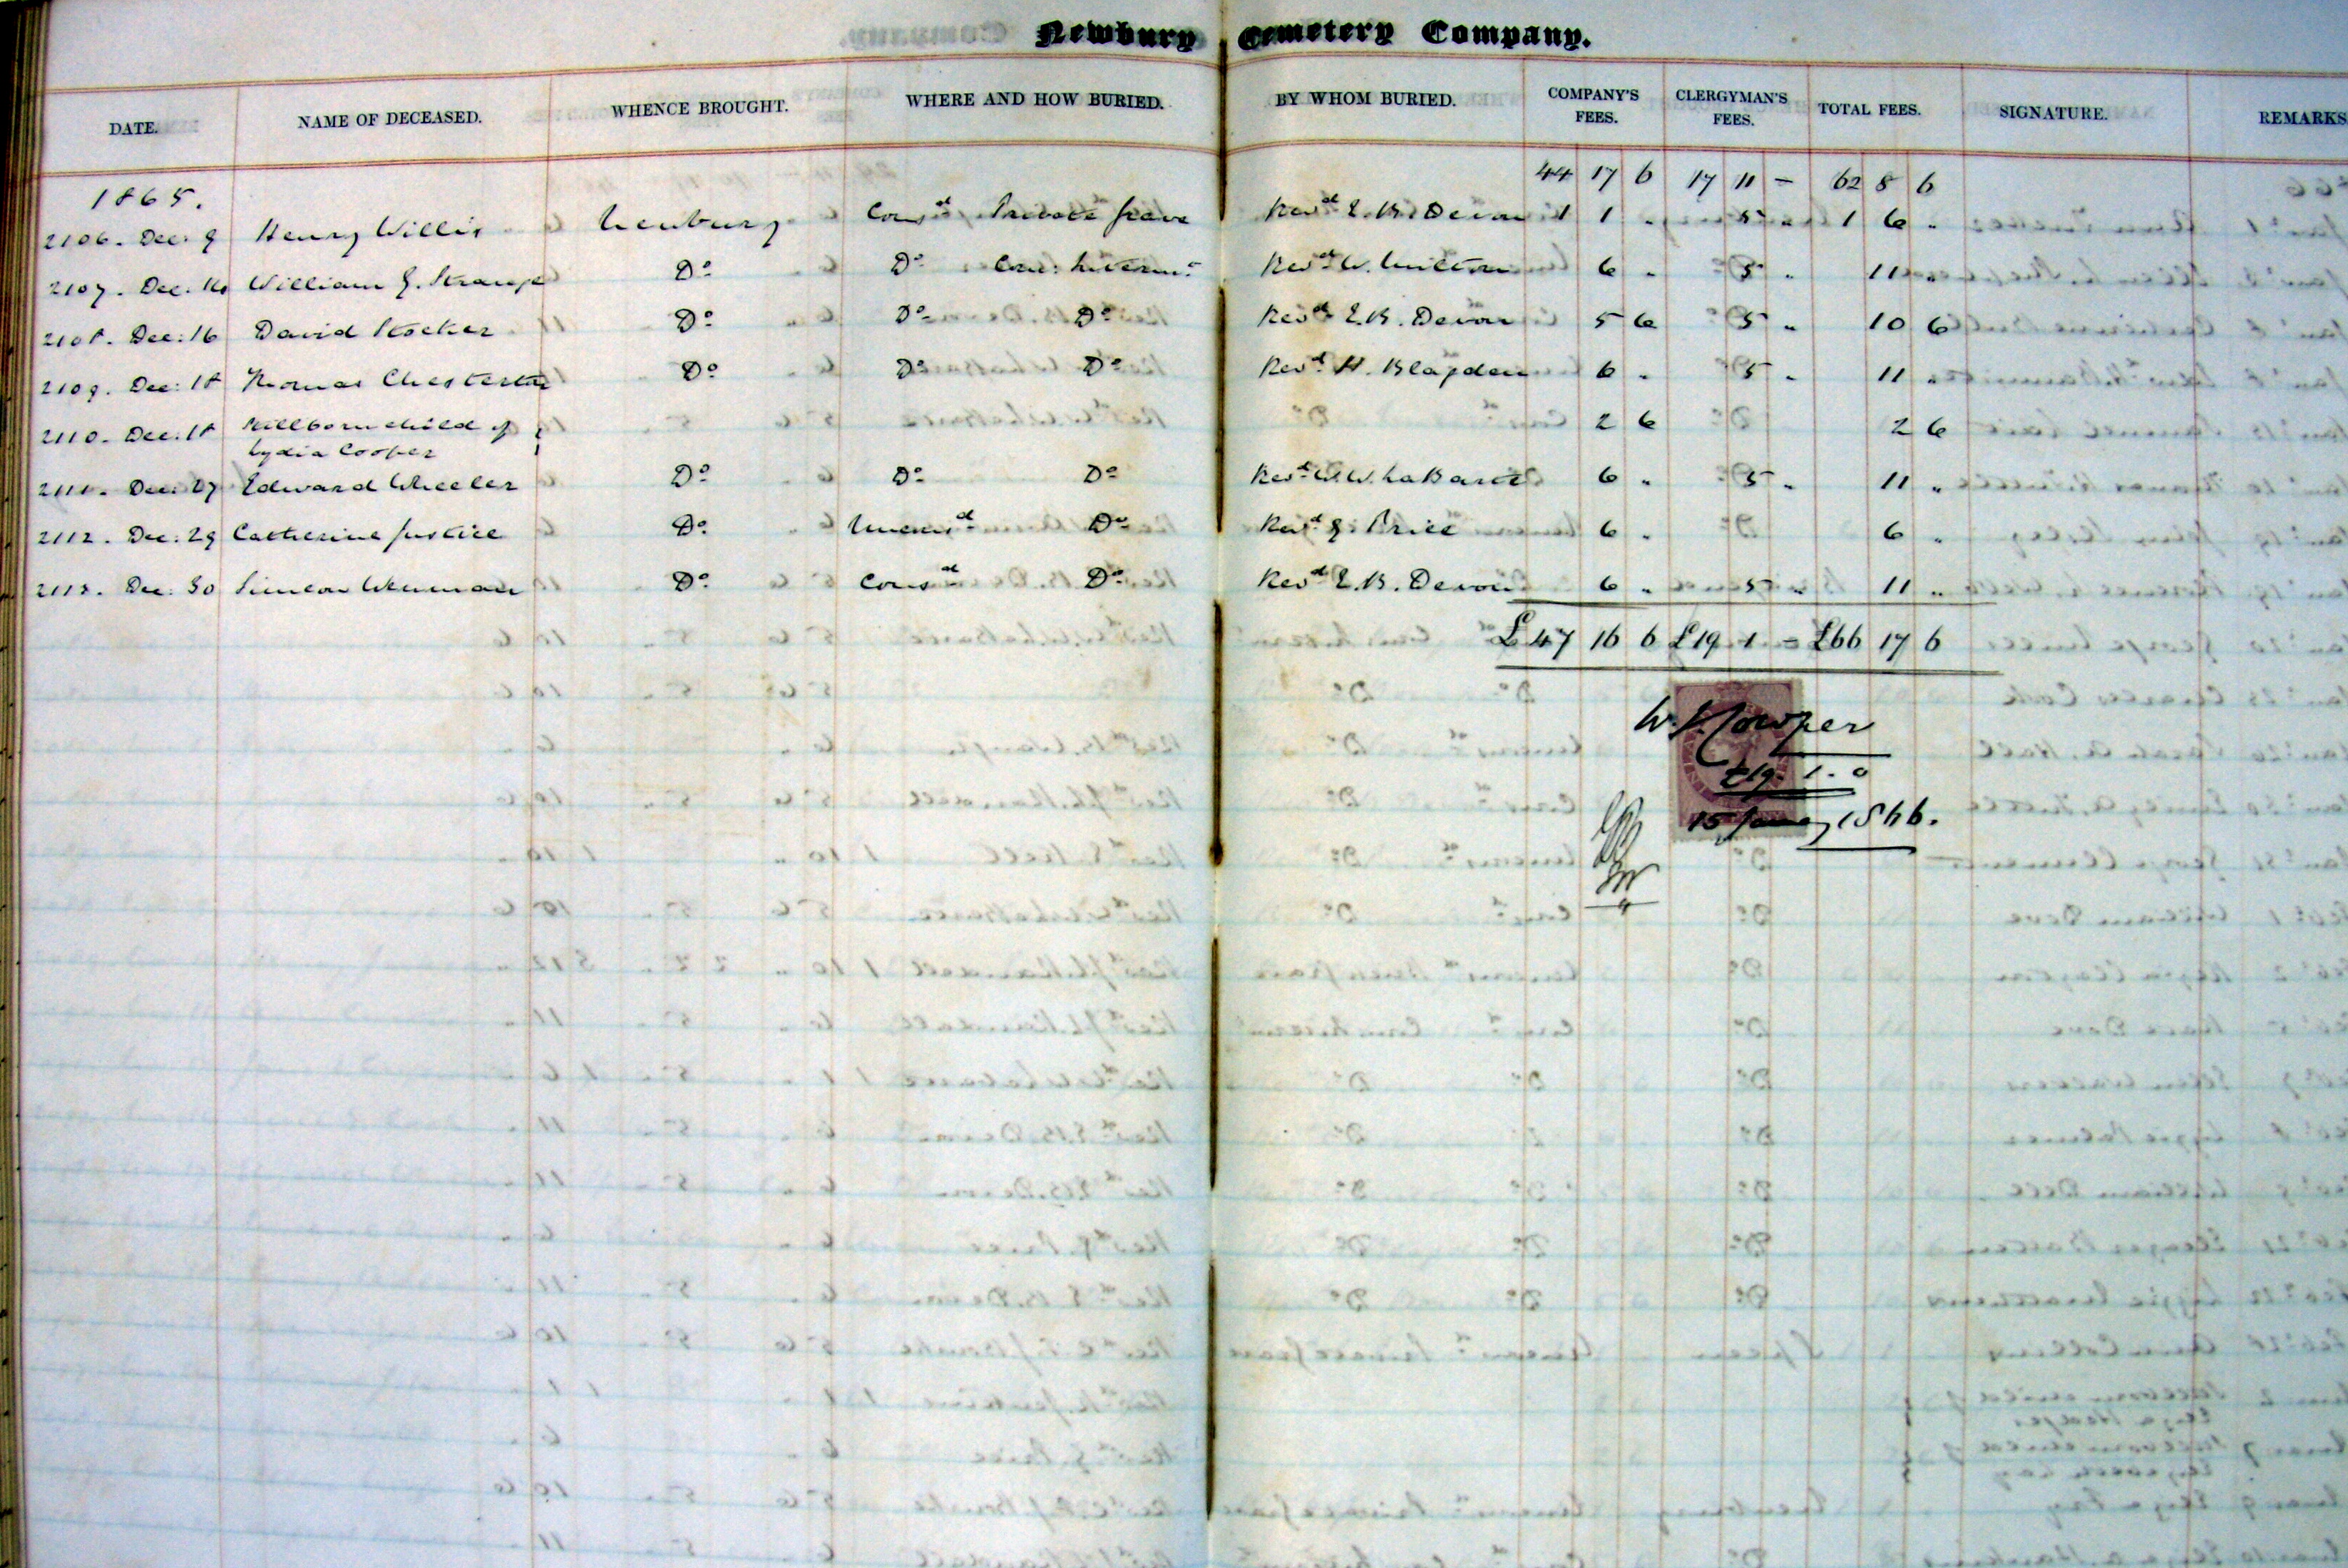 Newbury Cemetery Company.
DATE. NAME OF DECEASED. WHENCE BROUGHT. WHERE AND HOW BURIED. BY WHOM BURIED. COMPANY'S FEES. CLERGYMAN'S FEES. TOTAL FEES. SIGNATURE. REMARKS
44 17 6 17 11 - 62 8 6
1865.
2106. Dec: 9 Henry Willis Newbury Consd Private Grave Revd E. B. Devon 1 1 " 5 " 1 6 "
2107. Dec. 14 William G. Strange Do Do Com: Intermt Revd W. Milton 6 " 5 " 11 "
2108. Dec: 16 David Stocker Do Do Do Revd E. B. Devon 5 6 5 " 10 6
2109. Dec: 18 Thomas Chesterton Do Do Do Revd H. Blagden 6 " 5 " 11 "
2110. Dec: 18 Stillborn child of 2 6 2 6
Lydia Cooper
2111. Dec: 27 Edward Wheeler Do Do Do Revd W. W. LaBarte 6 " 5 " 11 "
2112. Dec: 29 Catherine Justice Do Unconsd Do Revd J. Price 6 " 6 "
2113. Dec: 30 Simeon Do Consd Do Revd E. B. Devon 6 " 5 " 11 "
£47 16 6 £19 1 - £66 17 6
W. J. Cowper
£19. 1. 0
15 January 1866.